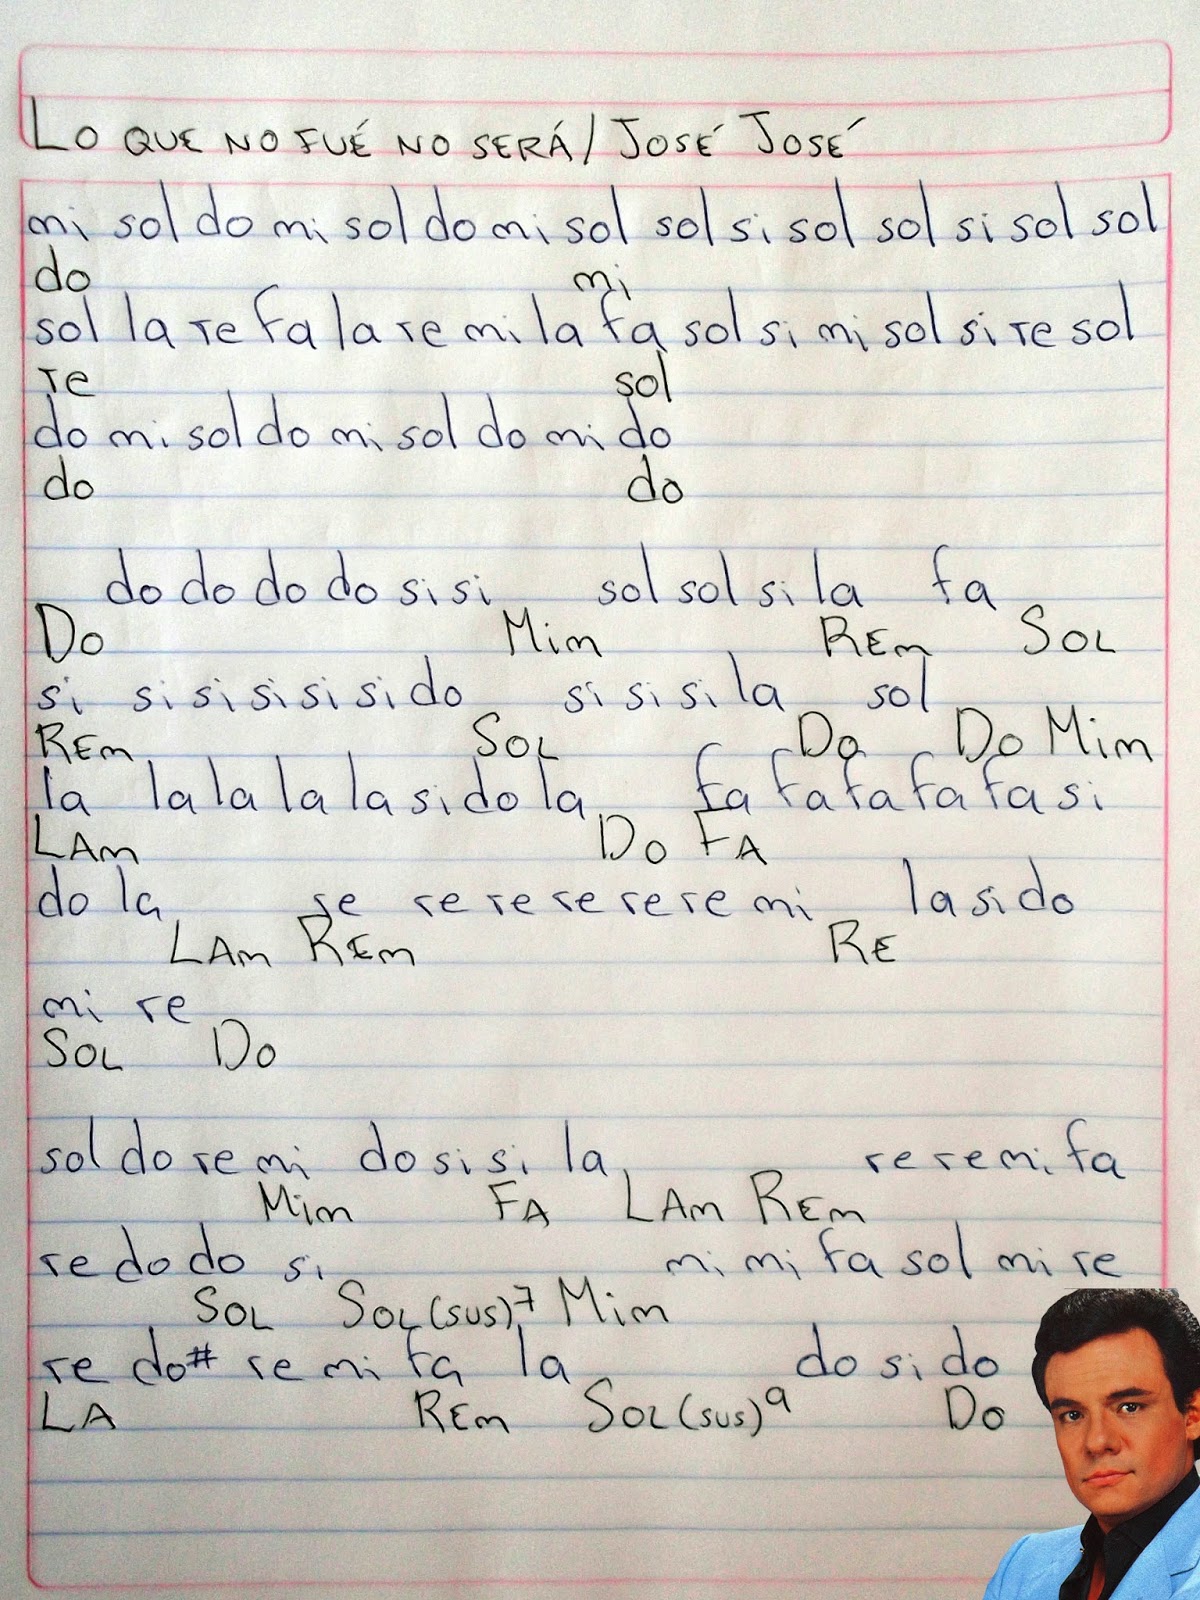 LO QUE NO FUÉ NO SERÁ/ JOSÉ JOSÉ
mi sol do mi sol do mi sol sol si sol sol si sol sol
do mi
sol la re fa la re mi la fa sol si mi sol si re sol
re sol
do mi sol do mi sol do mi do
do do
do do do do si si sol sol si la fa
DO MIm REm SOL
si si si si si si do si si si la sol
REm SOL DO DO MIm
la la la la la si do la fa fa fa fa fa si
LAm DO FA
do la re re re re re re mi la si do
LAm REm RE
mi re
SOL DO
sol do re mi do si si la re re mi fa
MIm FA LAm REm
re do do si mi mi fa sol mi re
SOL SOL(SUS)7 MIm
re do# re mi fa la do si do
LA REm SOL(SUS)9 DO